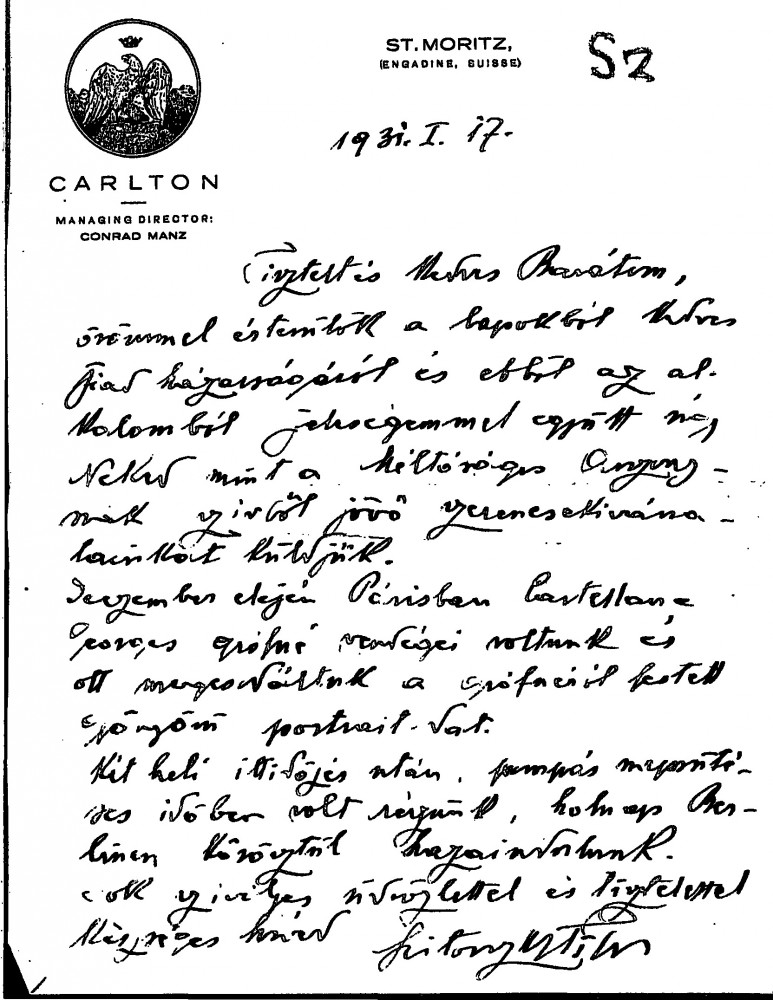 ST. MORITZ,
(ENGADINE, SUISSE)
Sz
1931. I. 17.
CARLTON
MANAGING DIRECTOR:
CONRAD MANZ
Tisztelt és Kedves Barátom,
örömmel értesülök a lapokból kedves
fiad házasságáról és ebből az al-
kalomból feleségemmel együtt úgy
Neked mint a Méltóságos Asszony-
nak szívből jövő szerencsekívána-
tainkat küldjük.
Deczember elején Párisban Castellane
Georges grófné vendégei voltunk és
ott megcsodáltuk a grófnéról festett
gyönyörű portrait-dat.
Két heti itt időzés után, pompás napsüté-
ses időben volt részünk, holnap Ber-
linen keresztül hazaindulunk.
Sok szívélyes üdvözlettel és tisztelettel
készséges híved